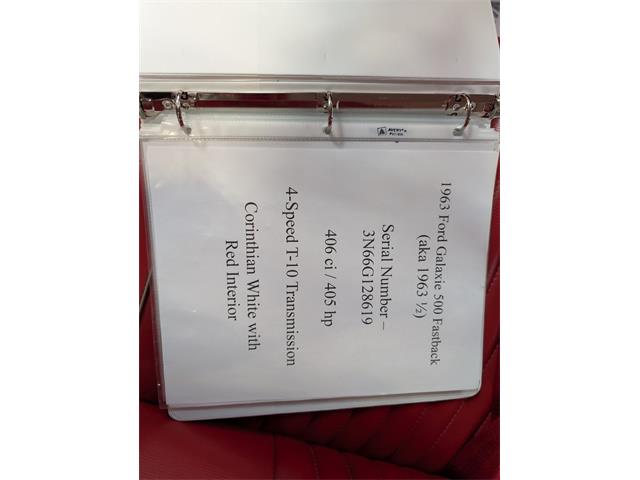 1963 Ford Galaxie 500 Fastback
(aka 1963 ½)
Serial Number –
3N66G128619
406 ci / 405 hp
4-Speed T-10 Transmission
Corinthian White with
Red Interior
AVERY